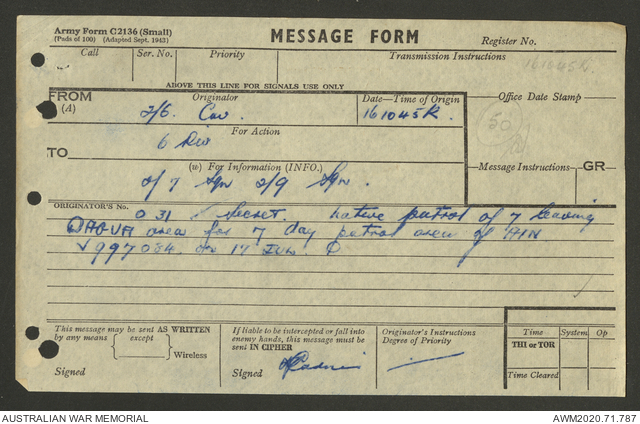 Army Form C2136 (Small)
(Pads of 100) (Adapted Sept. 1943)
MESSAGE FORM
Register No.
Call Ser. No. Priority Transmission Instructions
161045K
ABOVE THIS LINE FOR SIGNALS USE ONLY
FROM Originator Date—Time of Origin Office Date Stamp
(A) 2/6. Cav 161045K.
50
For Action
6 Div
TO
(W) For Information (INFO.) Message Instructions GR
2/7 Sqn 2/9 Sqn.
ORIGINATOR'S No.
O 31 Secret. Native patrol of 7 leaving
DAGUA area for 7 day patrol area of
997084. on 17
This message may be sent AS WRITTEN
by any means except
Wireless
Signed
If liable to be intercepted or fall into
enemy hands, this message must be
sent IN CIPHER
Signed
Originator's Instructions
Degree of Priority
Time System Op
THI or TOR
Time Cleared
AUSTRALIAN WAR MEMORIAL AWM2020.71.787